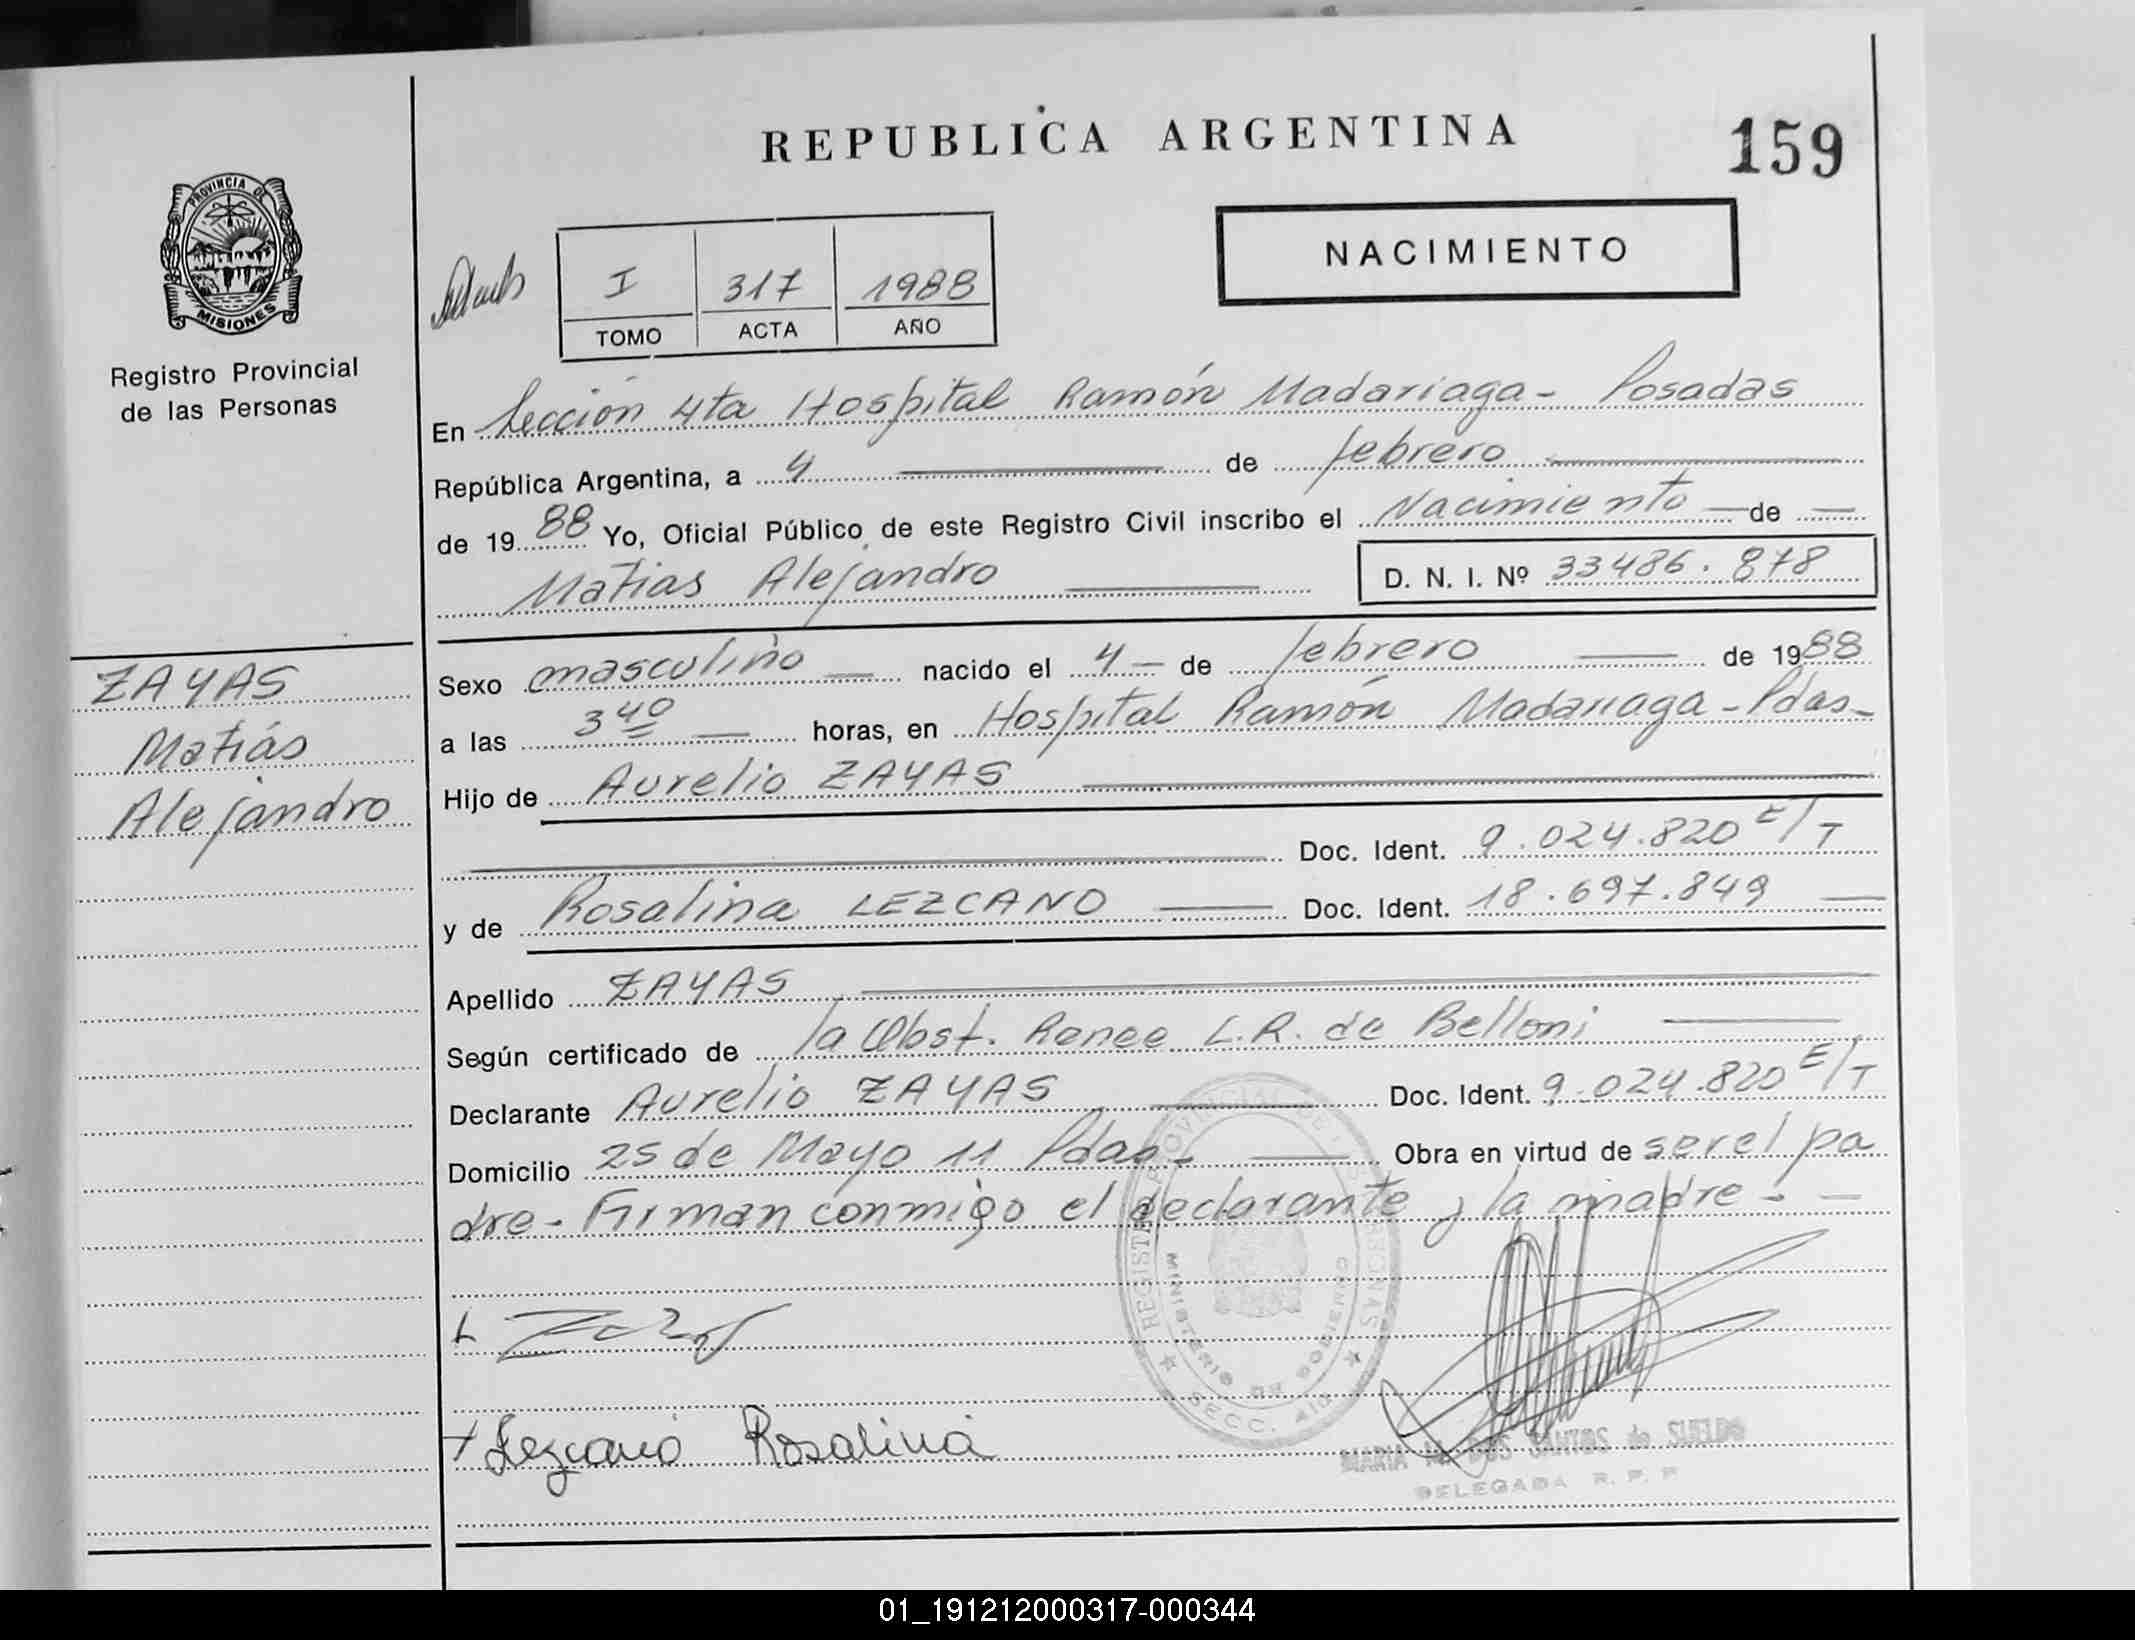 REPUBLICA ARGENTINA
159
PROVINCIA DE
MISIONES
Registro Provincial
de las Personas
NACIMIENTO
I 317 1988
TOMO ACTA AÑO
En Sección 4ta Hospital Ramón Madariaga - Posadas
República Argentina, a 4 de febrero
de 19 88 Yo, Oficial Público de este Registro Civil inscribo el Nacimiento de
Matias Alejandro
D. N. I. Nº 33486.878
ZAYAS
Matiás
Alejandro
Sexo masculino nacido el 4 de febrero de 1988
a las 3 40 horas, en Hospital Ramón Madariaga - Pdas-
Hijo de Aurelio ZAYAS
Doc. Ident. 9.024.820 E/T
y de Rosalina LEZCANO Doc. Ident. 18.697.849
Apellido ZAYAS
Según certificado de la Obst. Renee L.R. de Belloni
Declarante Aurelio ZAYAS Doc. Ident. 9.024.820 E/T
Domicilio 25 de Mayo 11 Pdas- Obra en virtud de ser el pa
dre- Firman conmigo el declarante y la madre-
Lezcano Rosalina
MINISTERIO DE GOBIERNO
SECC. 4ta
MARIA M. DOS SANTOS de SUELDO
DELEGADA R. P. P
01_191212000317-000344